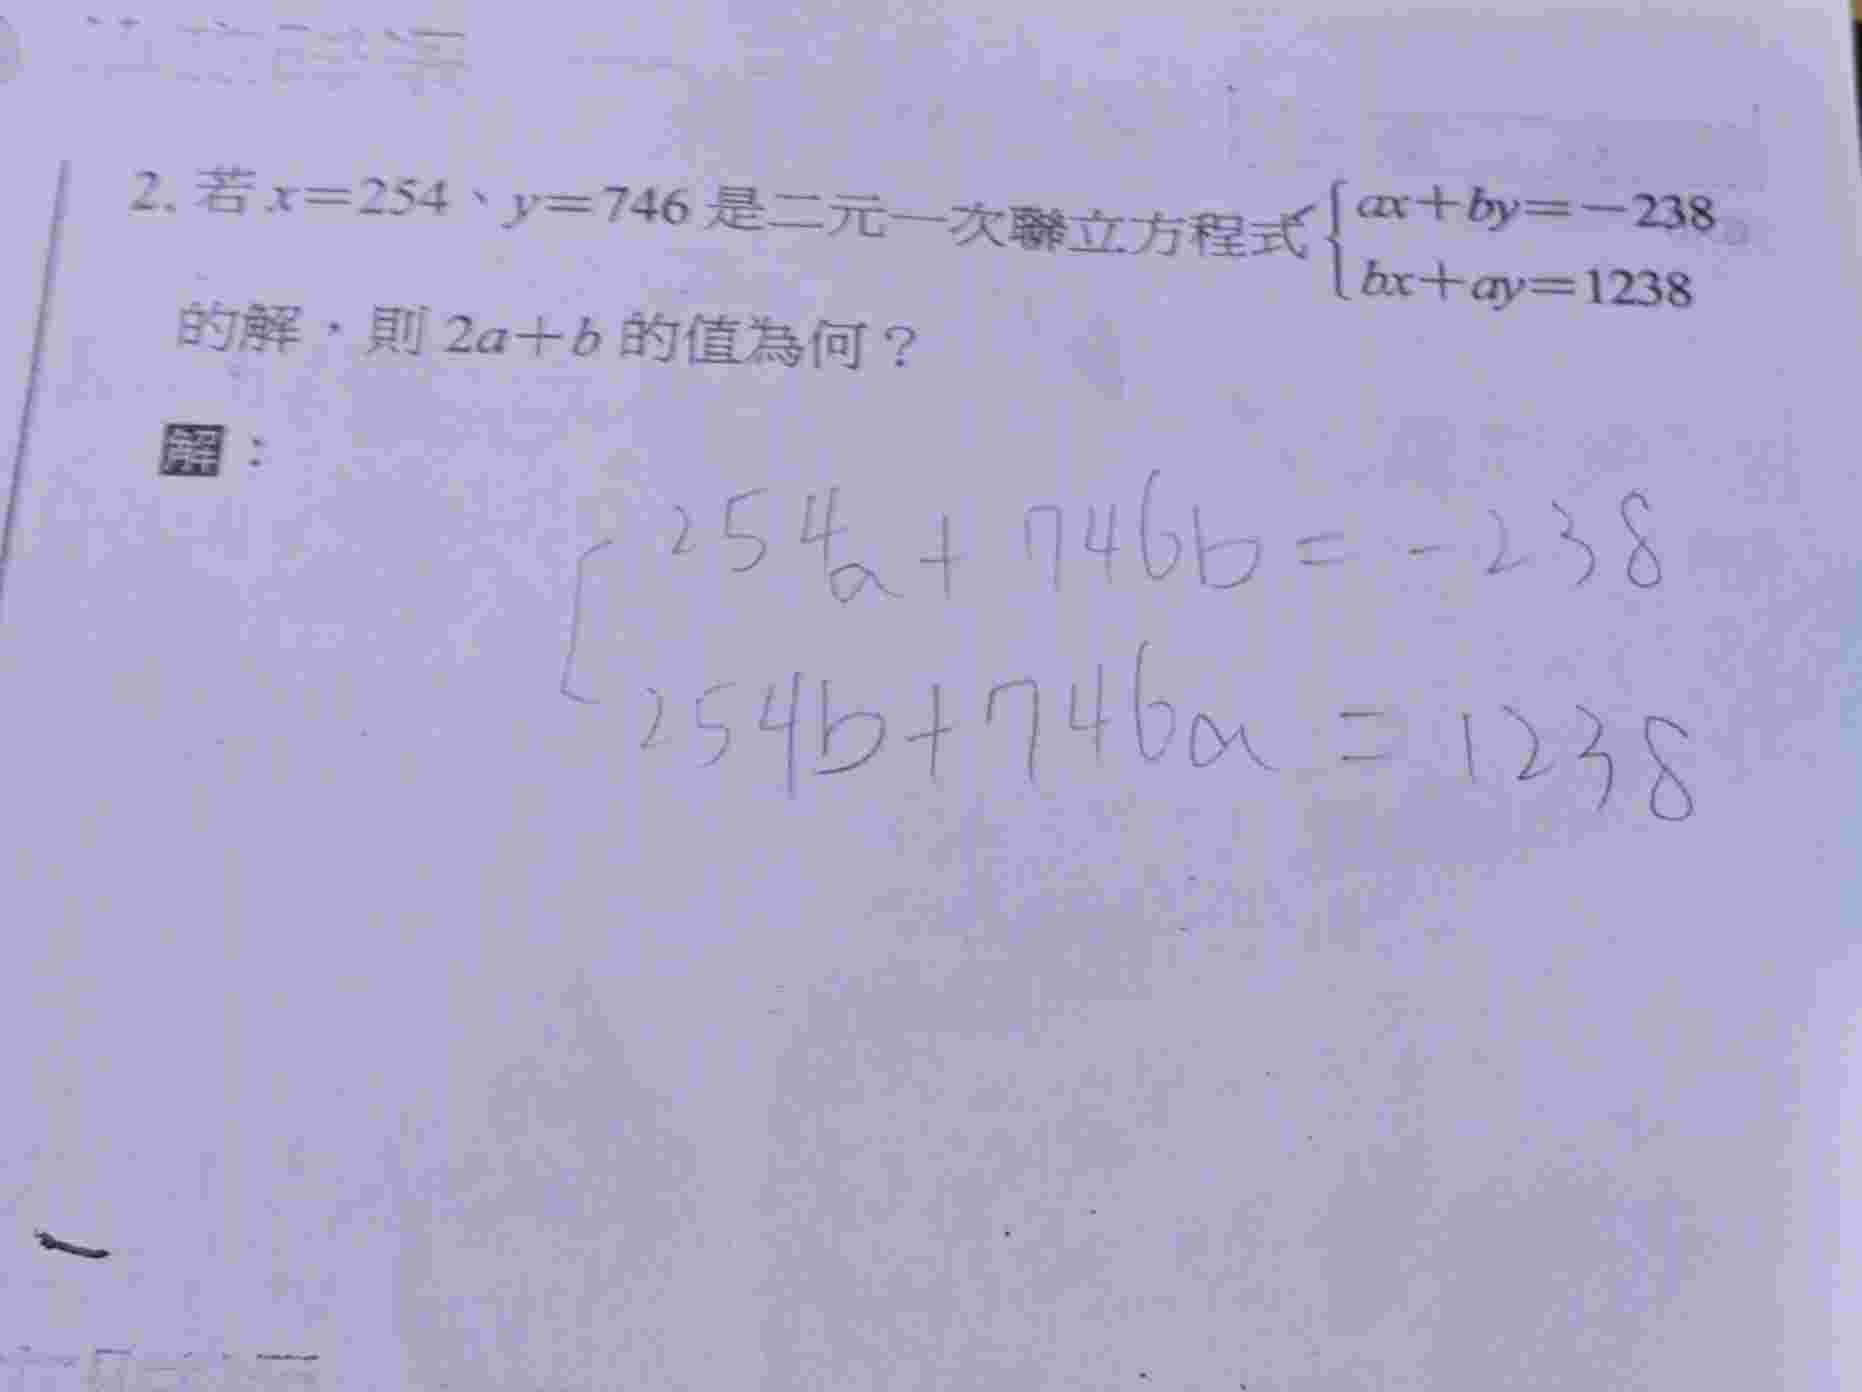 2. 若 x=254、y=746 是二元一次聯立方程式 { ax+by=-238
bx+ay=1238
的解，則 2a+b 的值為何？
解：
254a+746b=-238
254b+746a=1238